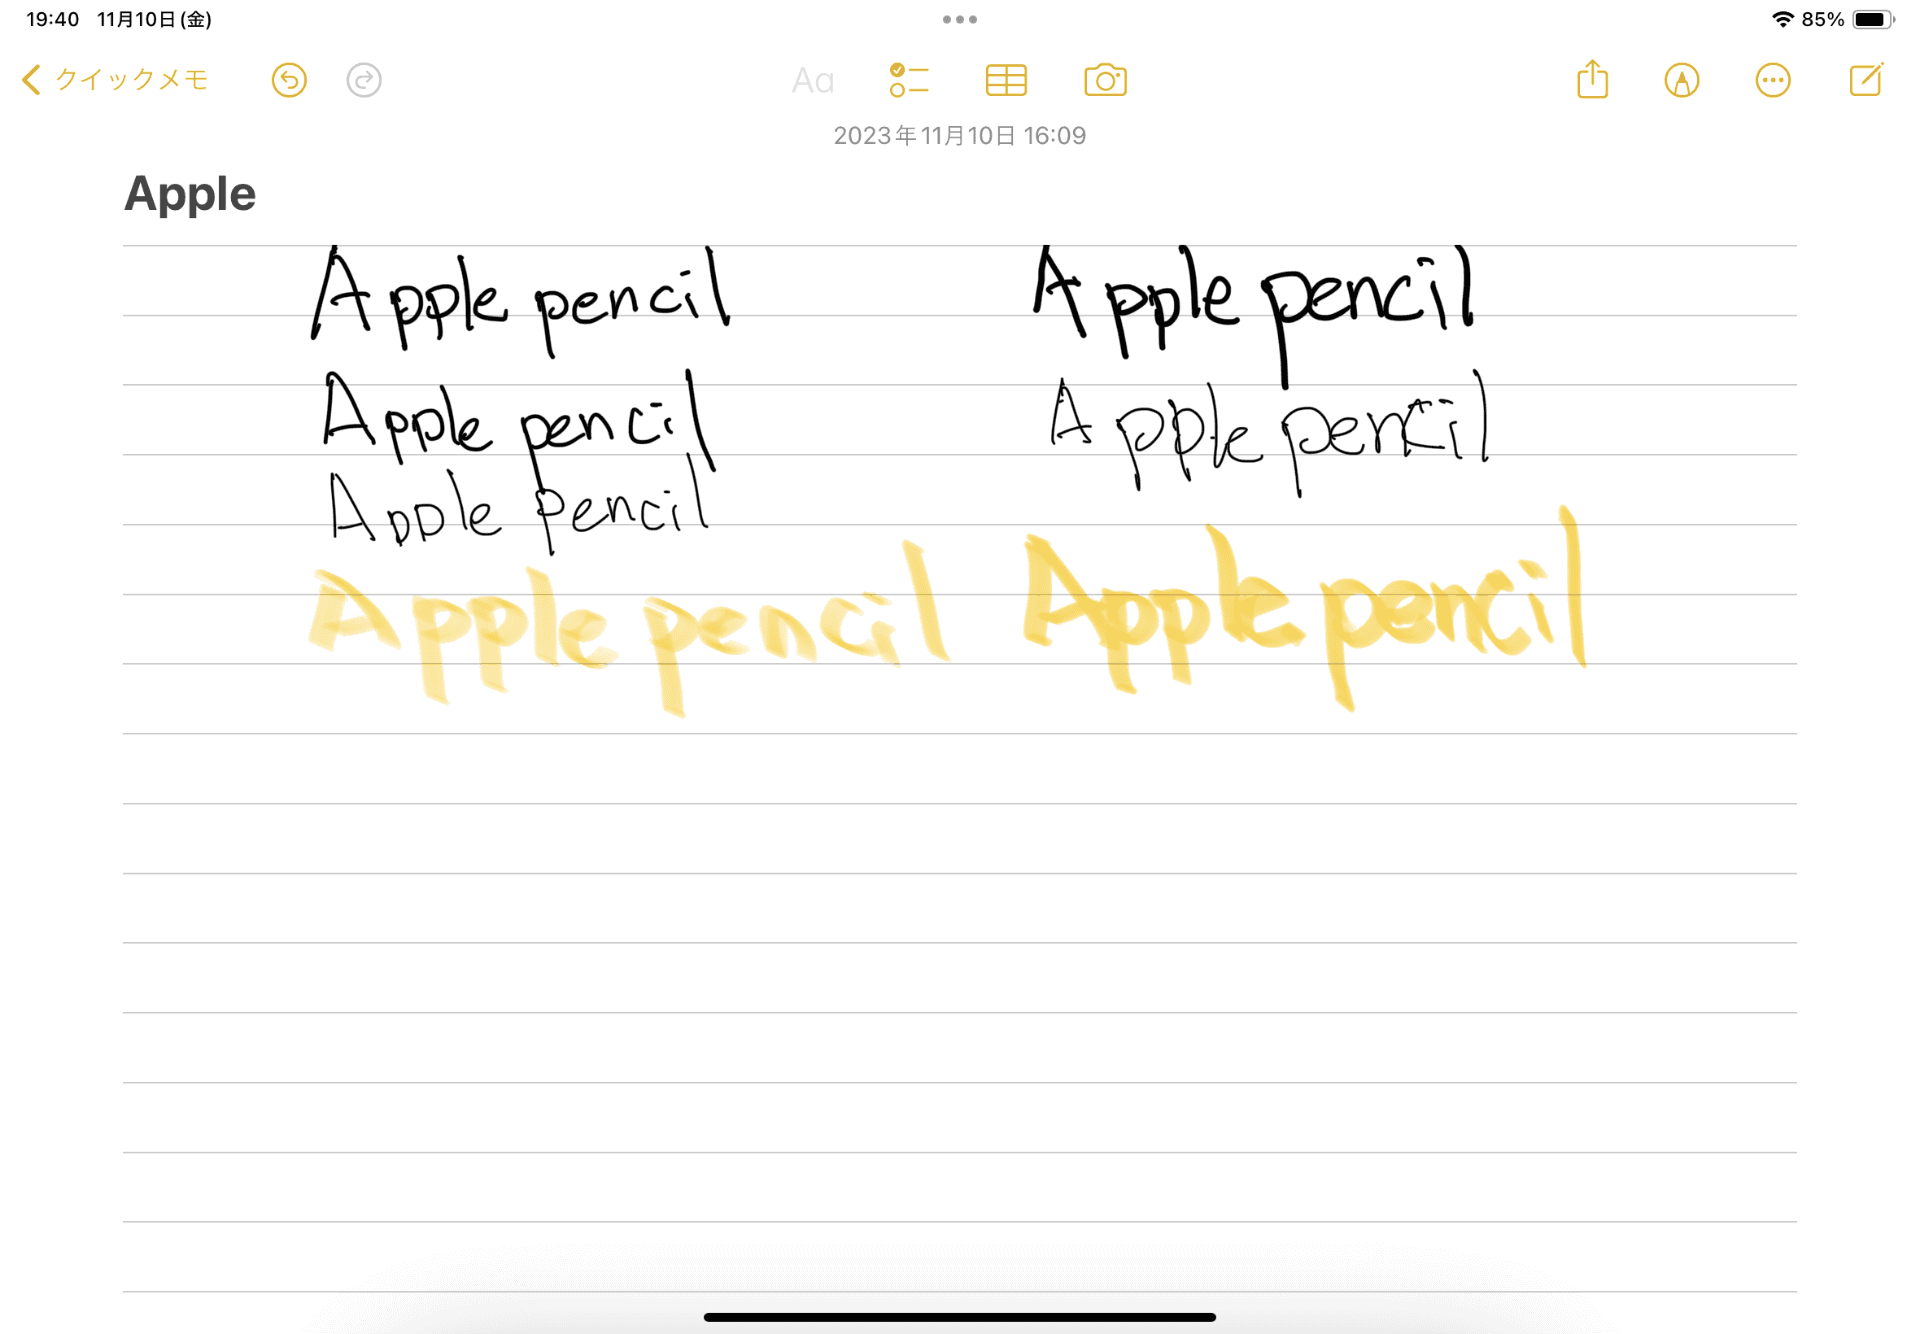 19:40 11月10日(金) 85%
クイックメモ Aa
2023年11月10日 16:09
Apple
Apple pencil Apple pencil
Apple pencil Apple pencil
Apple pencil
Apple pencil Apple pencil